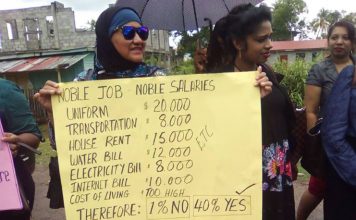 NOBLE JOB NOBLE SALARIES
UNIFORM $20.000
TRANSPORTATION $8.000
HOUSE RENT $15.000
WATER BILL $12.000
ELECTRICITY BILL $8.000
INTERNET BILL $10.000
COST OF LIVING TOO HIGH
ETC
THEREFORE: 1% NO 40% YES